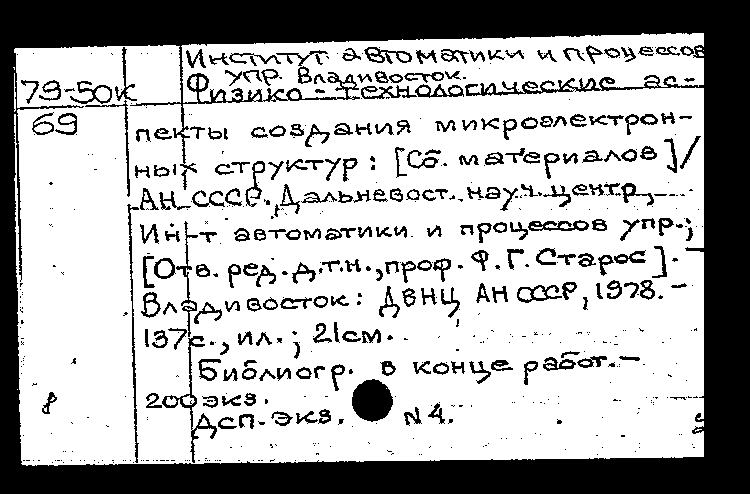 Институт автоматики и процессов
упр. Владивосток.
79-50к Физико-технологические ас-
69 пекты создания микроэлектрон-
ных структур: [Сб. материалов]/
АН СССР. Дальневост. науч. центр,
Ин-т автоматики и процессов упр.;
[Отв. ред. д.т.н., проф. Ф.Г. Старос]. -
Владивосток: ДВНЦ АН СССР, 1978. -
137с., ил.; 21см.
Библиогр. в конце работ. -
200экз.
ДСП. экз. N 4.